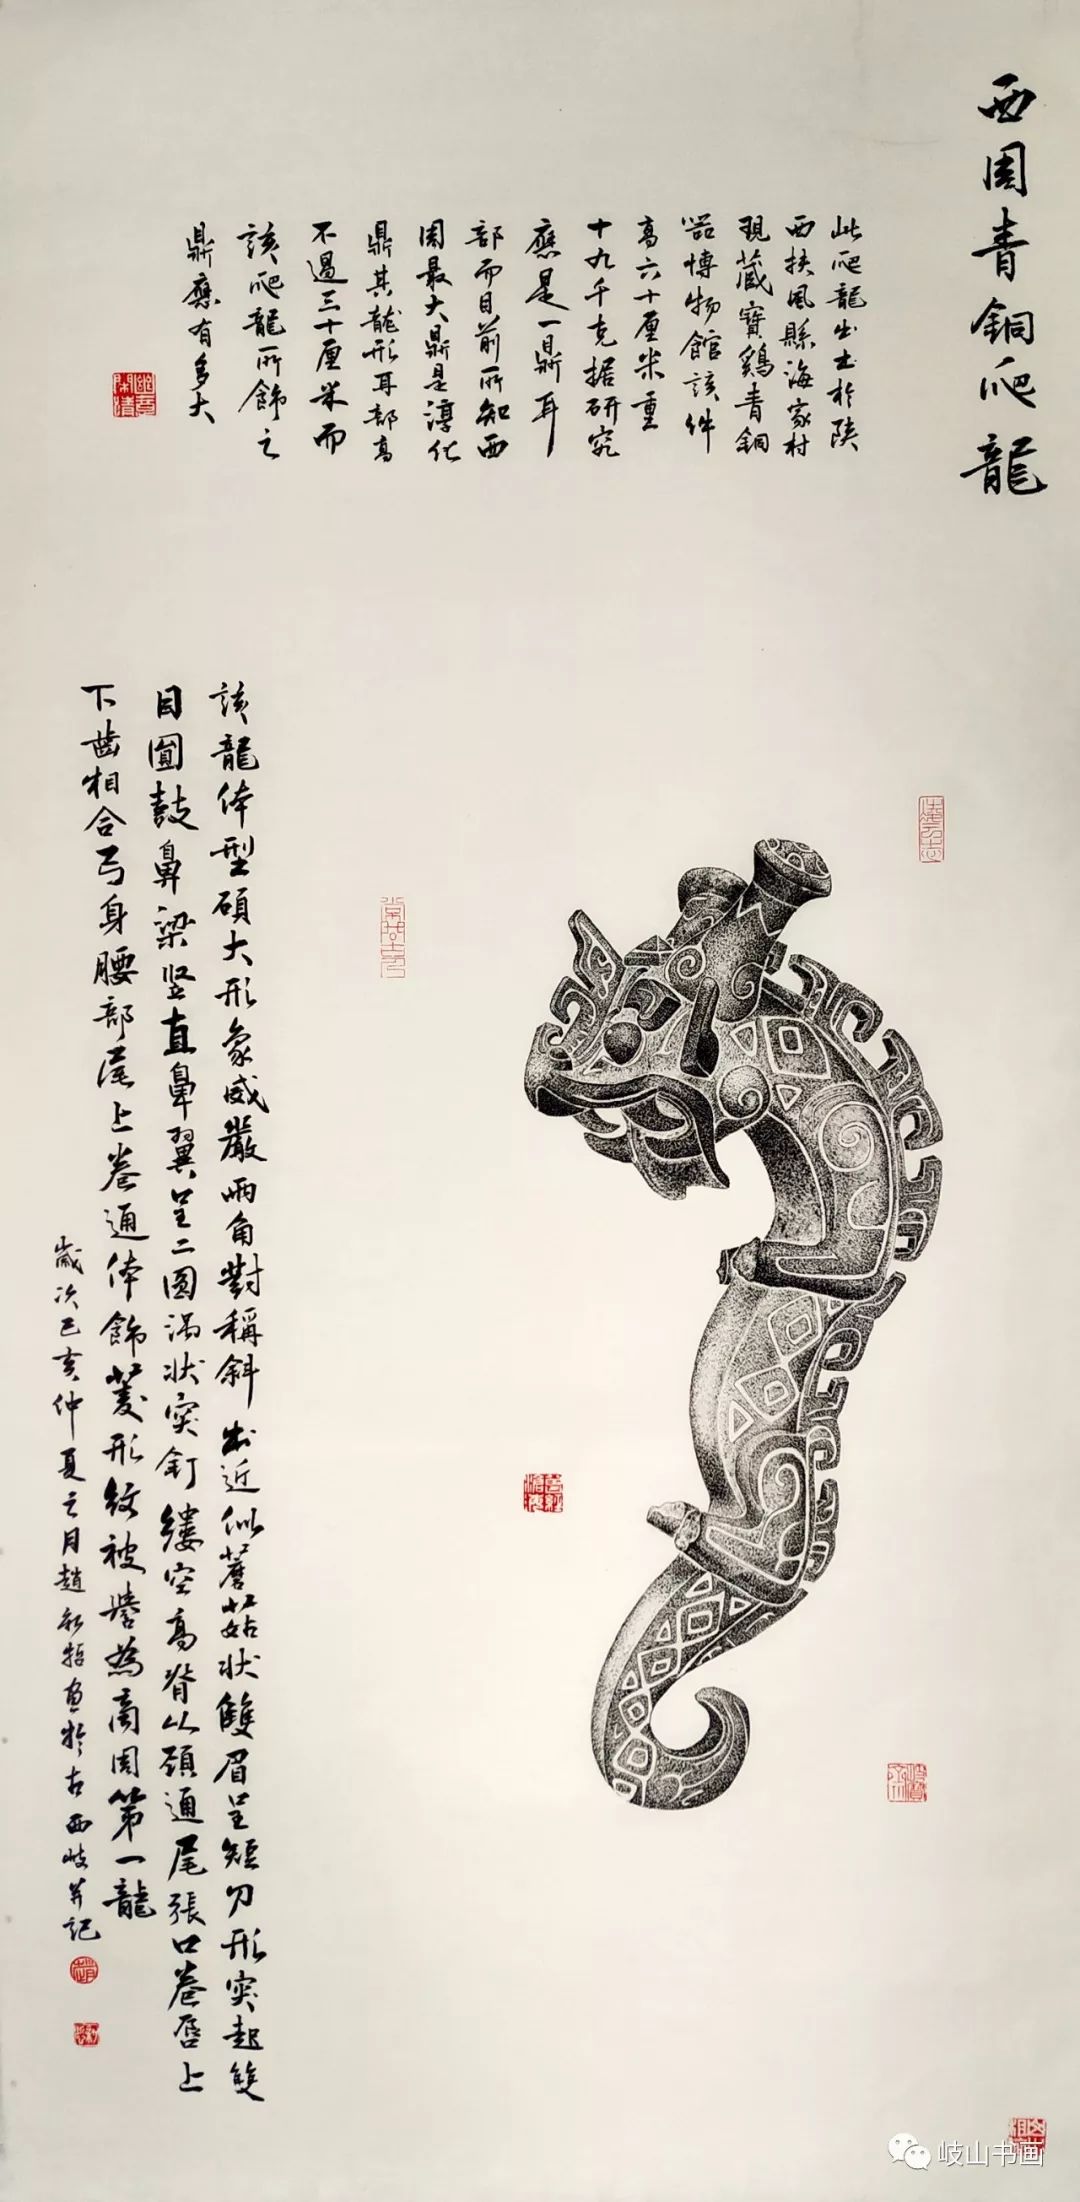 西周青銅爬龍
此爬龍出土於陝
西扶風縣海家村
現藏寶鷄青銅
器博物館該件
高六十厘米重
十九千克据研究
應是一鼎耳
部而目前所知西
周最大鼎是淳化
鼎其龍形耳部高
不過三十厘米而
該爬龍所飾之
鼎應有多大
該龍体型碩大形象威嚴兩角對稱斜出近似蘑菇状雙眉呈短刀形突起雙
目圓鼓鼻梁竖直鼻翼呈二圆涡状突釘缕空高脊从頚通尾張口卷唇上
下齒相合弓身腰部尾上卷通体飾菱形纹被譽為商周第一龍
歲次己亥仲夏之月趙 画於古西岐並記
岐山书画